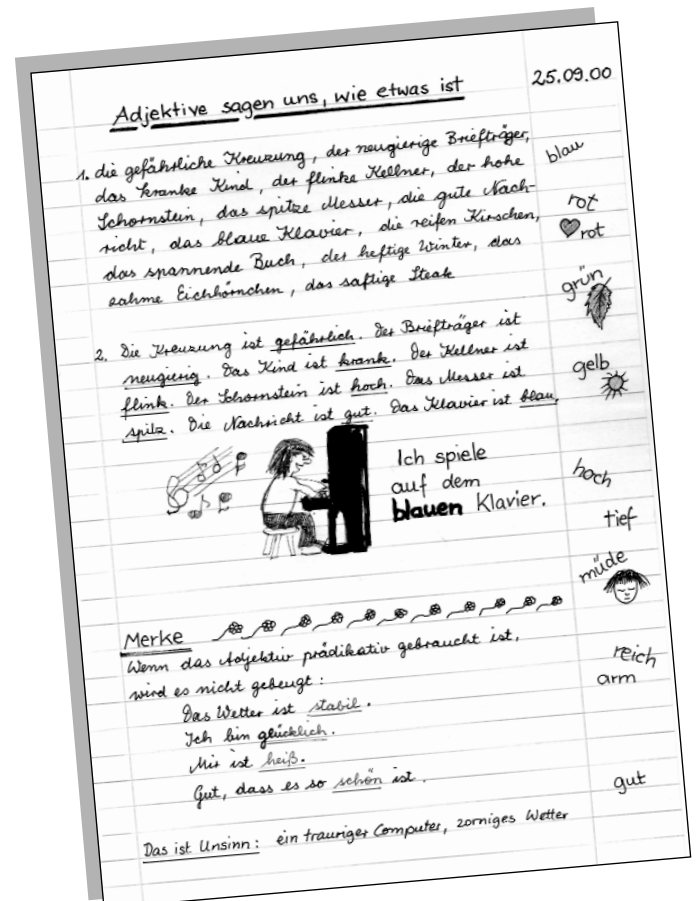 Adjektive sagen uns, wie etwas ist
25.09.00
1. die gefährliche Kreuzung, der neugierige Briefträger,
das kranke Kind, der flinke Kellner, der hohe
Schornstein, das spitze Messer, die gute Nach-
richt, das blaue Klavier, die reifen Kirschen,
das spannende Buch, der heftige Winter, das
zahme Eichhörnchen, das saftige Steak
2. Die Kreuzung ist gefährlich. Der Briefträger ist
neugierig. Das Kind ist krank. Der Kellner ist
flink. Der Schornstein ist hoch. Das Messer ist
spitz. Die Nachricht ist gut. Das Klavier ist blau.
Ich spiele
auf dem
blauen Klavier.
Merke
Wenn das Adjektiv prädikativ gebraucht ist,
wird es nicht gebeugt:
Das Wetter ist stabil.
Ich bin glücklich.
Mir ist heiß.
Gut, dass es so schön ist.
Das ist Unsinn: ein trauriger Computer, zorniges Wetter
blau
rot
rot
grün
gelb
hoch
tief
müde
reich
arm
gut